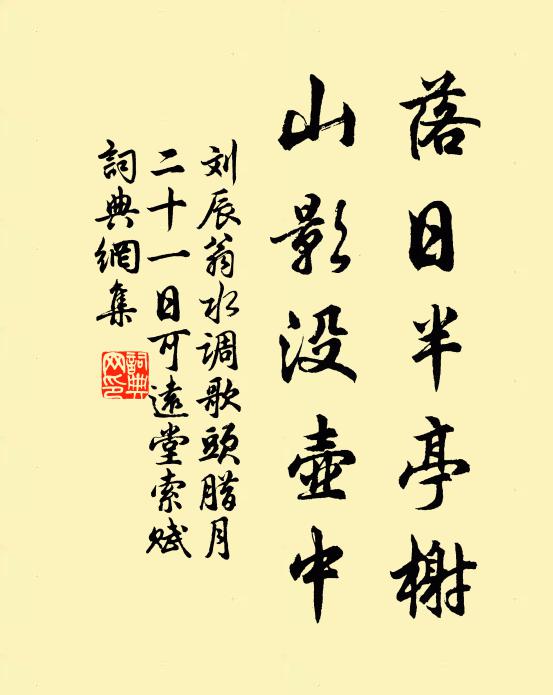 落日半亭榭
山影没壺中
刘辰翁水调歌頭腊月
二十一日可遠堂索赋
詞典網集
詞典
网印